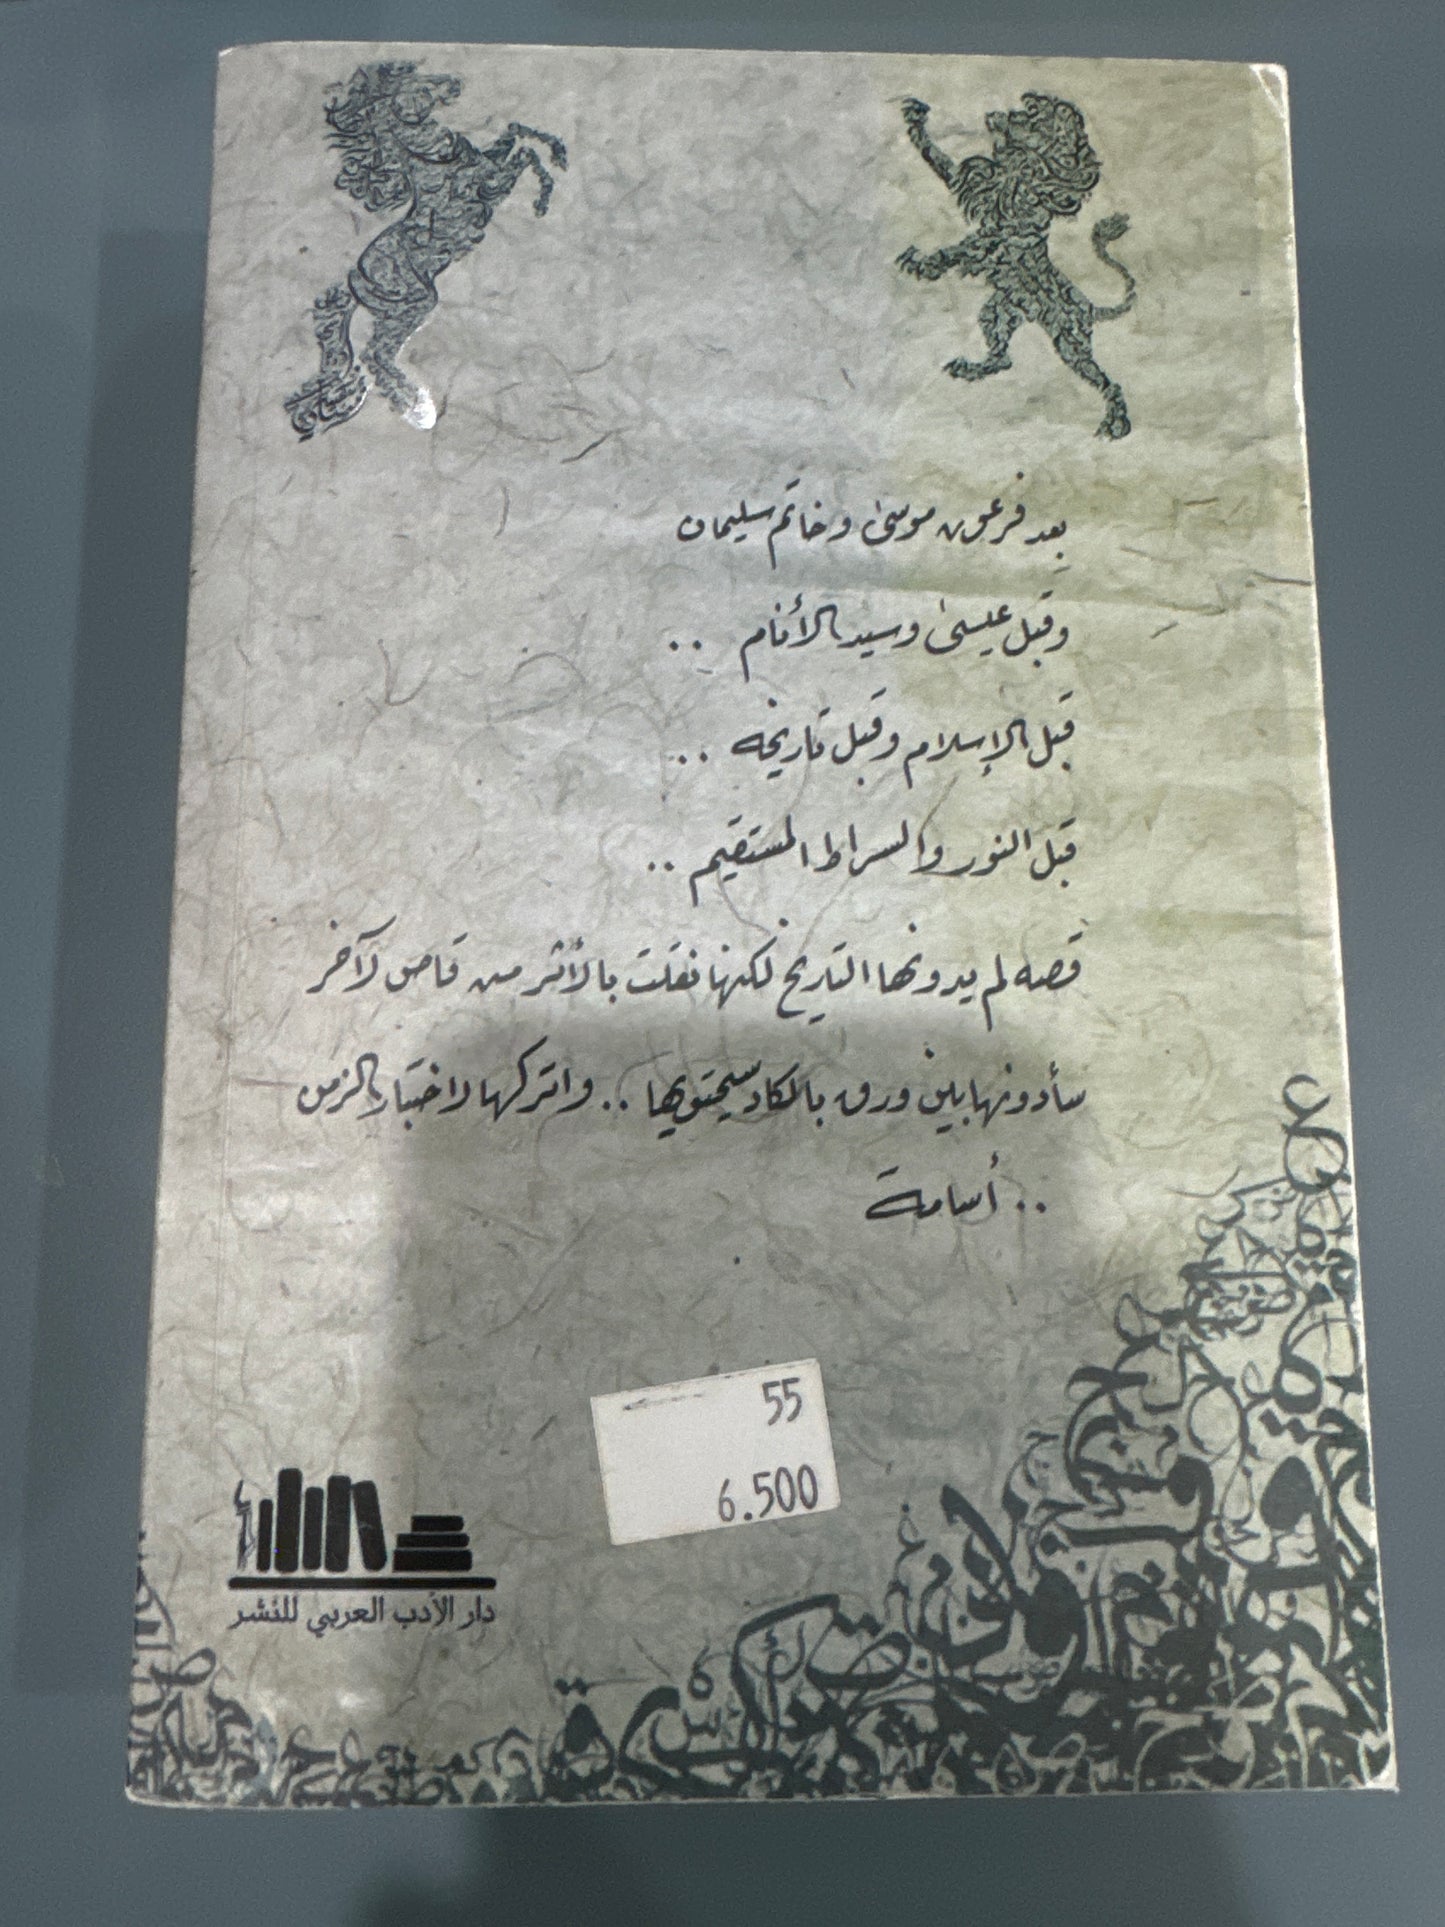 بعد فرعون موسى وخاتم سليمان
وقبل عيسى وسيد الأنام ..
قبل الإسلام وقبل تاريخه ..
قبل النور والسراط المستقيم ..
قصه لم يدونها التاريخ لكنها نقلت بالأثر من قاص لآخر
سأدونها بين ورق بالكاد سيحتويها .. واتركها لاختبار الزمن
.. أسامة
55
6.500
دار الأدب العربي للنشر